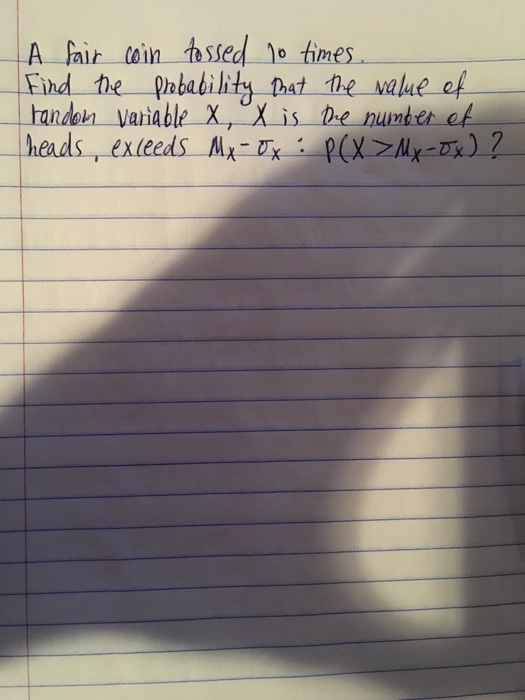 A fair coin tossed 10 times.
Find the probability that the value of
random variable X, X is the number of
heads, exceeds Mx-σx : P(X>Mx-σx)?